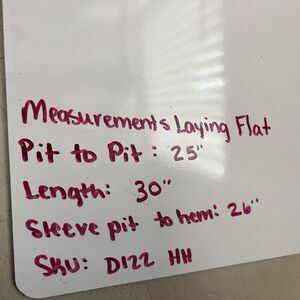 Measurements Laying Flat
Pit to Pit: 25"
Length: 30"
Sleeve pit to hem: 26"
SKU: D122 HH